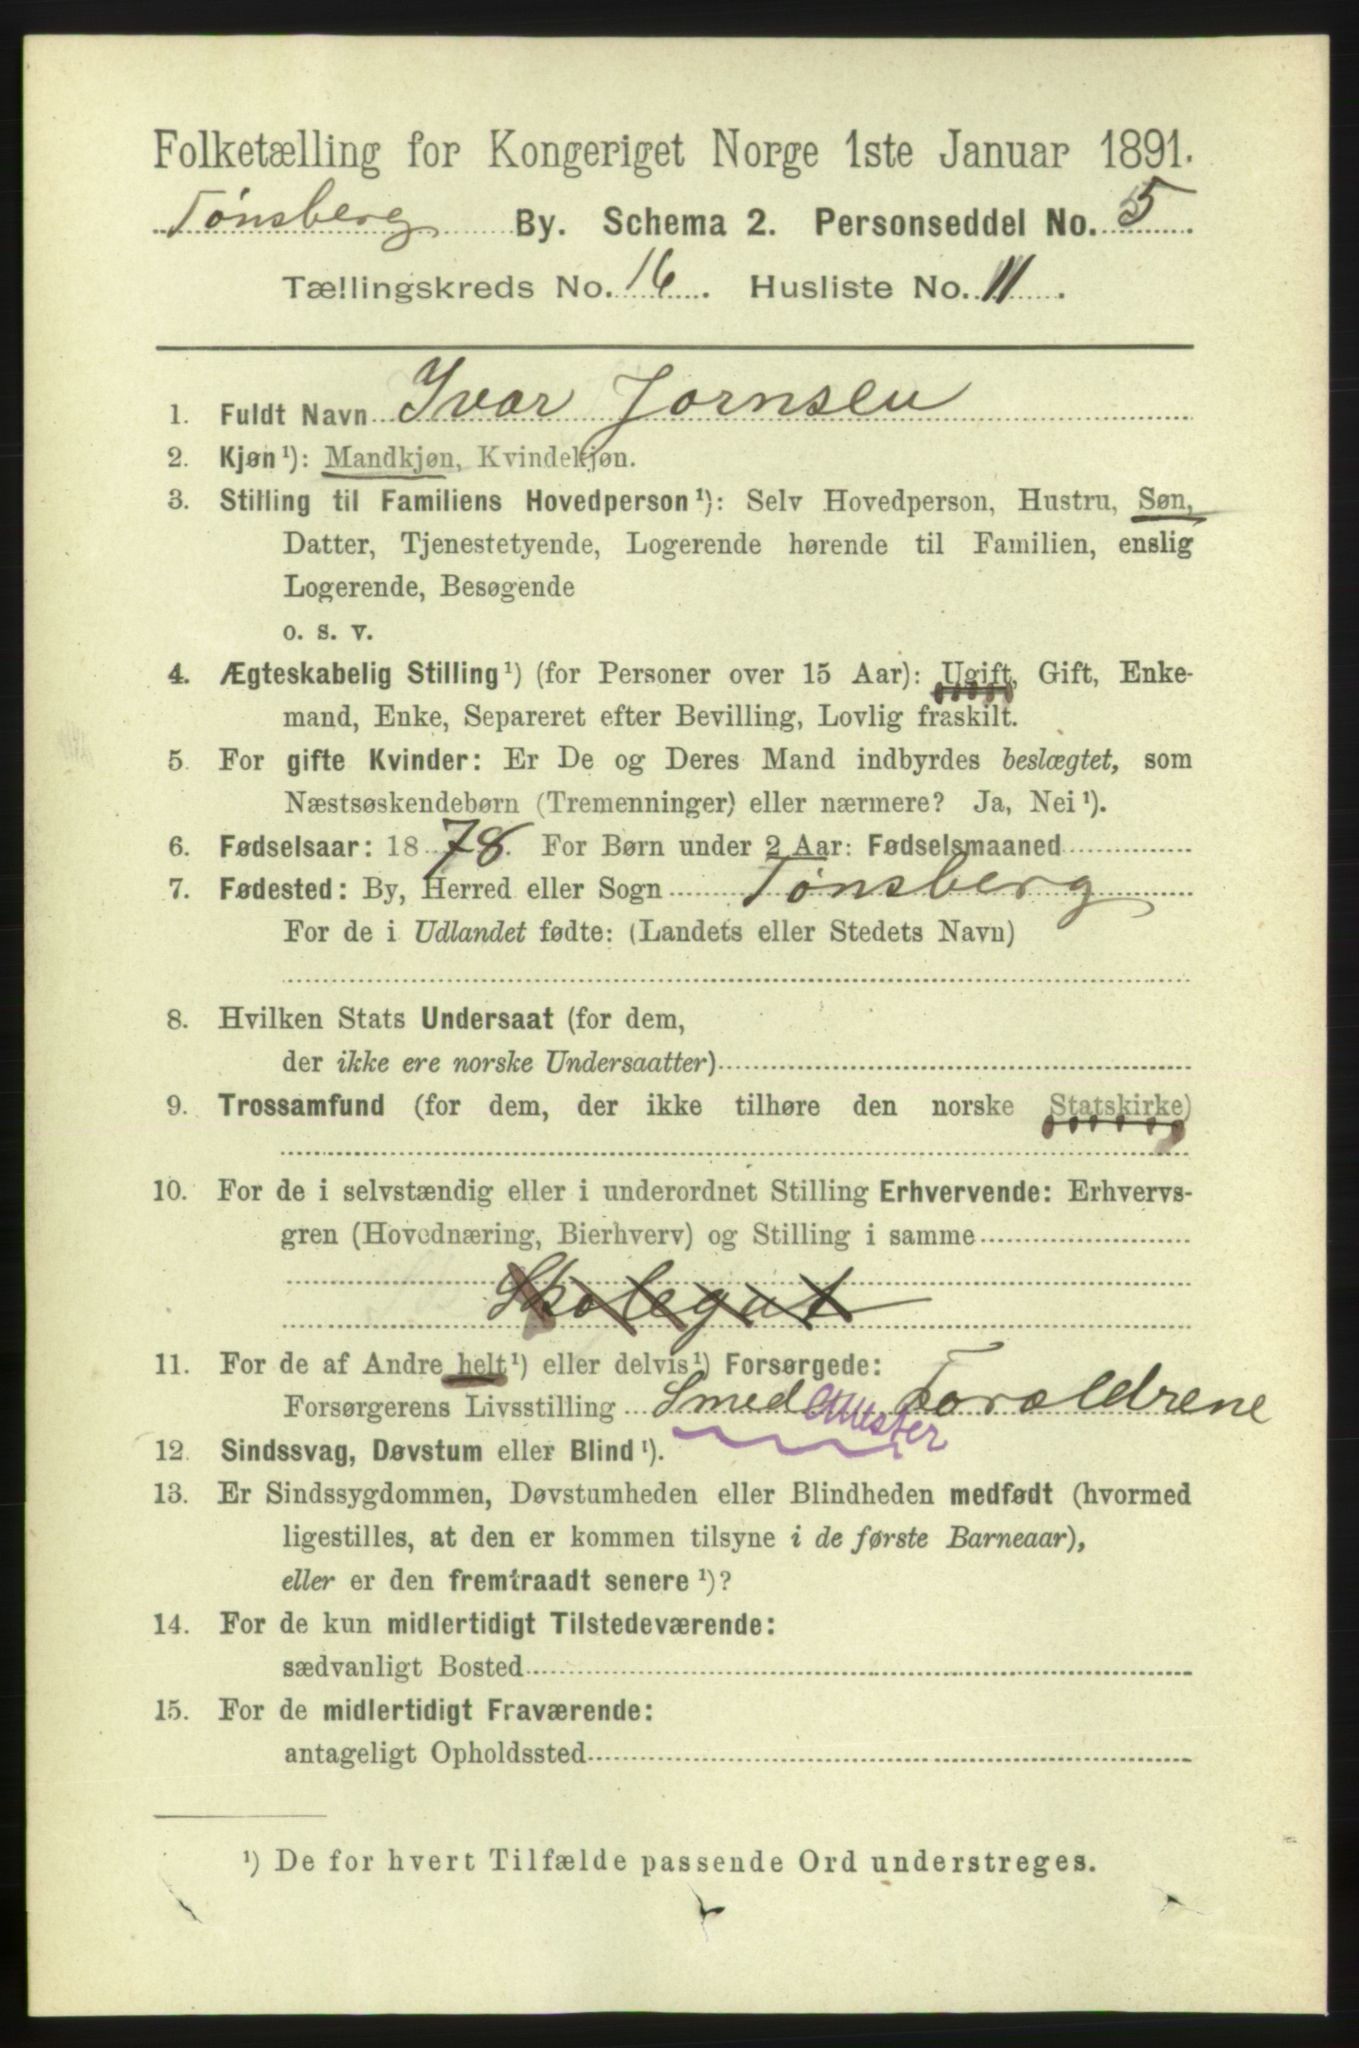 Folketælling for Kongeriget Norge 1ste Januar 1891.
Tønsberg By. Schema 2. Personseddel No. 5
Tællingskreds No. 16. Husliste No. 11.
1. Fuldt Navn Ivar Jornsen
2. Kjøn¹): Mandkjøn, Kvindekjøn.
3. Stilling til Familiens Hovedperson¹): Selv Hovedperson, Hustru, Søn,
Datter, Tjenestetyende, Logerende hørende til Familien, enslig
Logerende, Besøgende
o. s. v.
4. Ægteskabelig Stilling¹) (for Personer over 15 Aar): Ugift, Gift, Enke-
mand, Enke, Separeret efter Bevilling, Lovlig fraskilt.
5. For gifte Kvinder: Er De og Deres Mand indbyrdes beslægtet, som
Næstsøskendebørn (Tremenninger) eller nærmere? Ja, Nei¹).
6. Fødselsaar: 1878. For Børn under 2 Aar: Fødselsmaaned
7. Fødested: By, Herred eller Sogn Tønsberg
For de i Udlandet fødte: (Landets eller Stedets Navn)
8. Hvilken Stats Undersaat (for dem,
der ikke ere norske Undersaatter)
9. Trossamfund (for dem, der ikke tilhøre den norske Statskirke)
10. For de i selvstændig eller i underordnet Stilling Erhvervende: Erhvervs-
gren (Hovednæring, Bierhverv) og Stilling i samme
Skolegut
11. For de af Andre helt¹) eller delvis¹) Forsørgede:
Forsørgerens Livsstilling Smed Mester Forældrene
12. Sindssvag, Døvstum eller Blind¹).
13. Er Sindssygdommen, Døvstumheden eller Blindheden medfødt (hvormed
ligestilles, at den er kommen tilsyne i de første Barneaar),
eller er den fremtraadt senere¹)?
14. For de kun midlertidigt Tilstedeværende:
sædvanligt Bosted
15. For de midlertidigt Fraværende:
antageligt Opholdssted
¹) De for hvert Tilfælde passende Ord understreges.